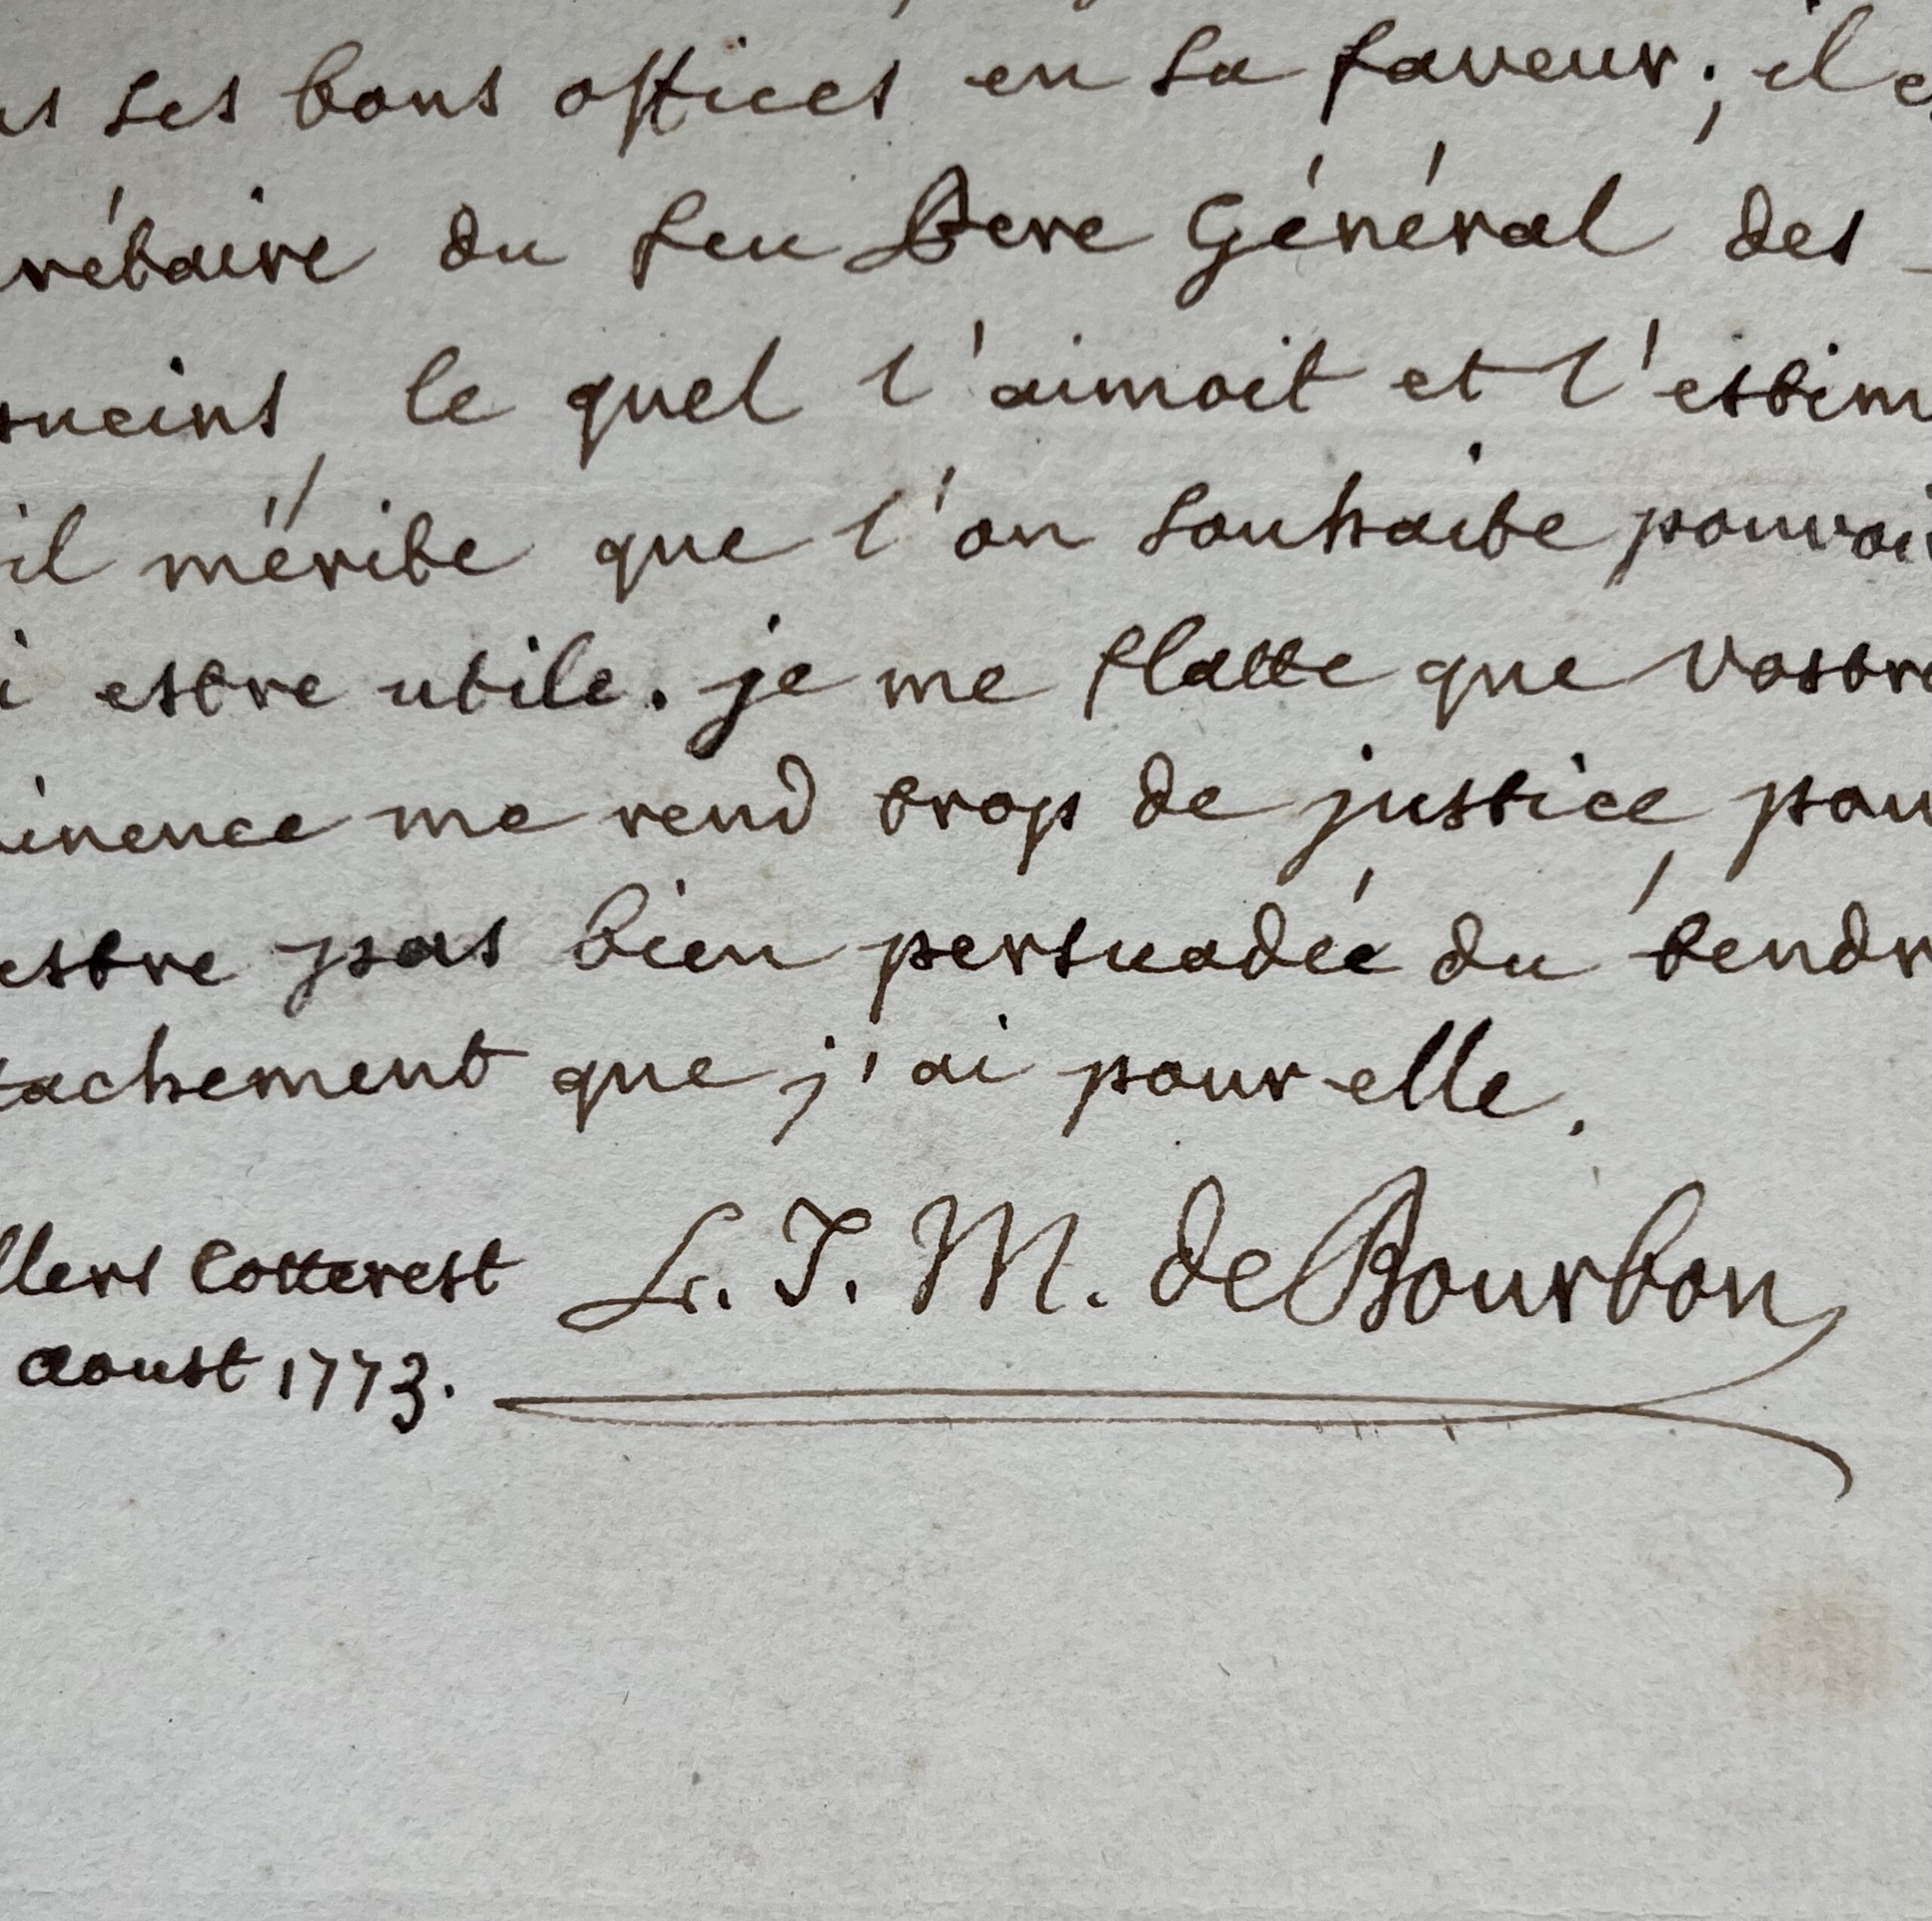 ses bons offices en sa faveur; il
rétaire du feu Pere Général des
sucins, le quel l'aimoit et l'estim
il mérite que l'on souhaite pouvoi
i estre utile. je me flatte que Vostre
inence me rend trop de justice, pou
estre pas bien persuadée du tendr
tachement que j'ai pour elle.
llers Cotterest L. J. M. de Bourbon
aoust 1773.